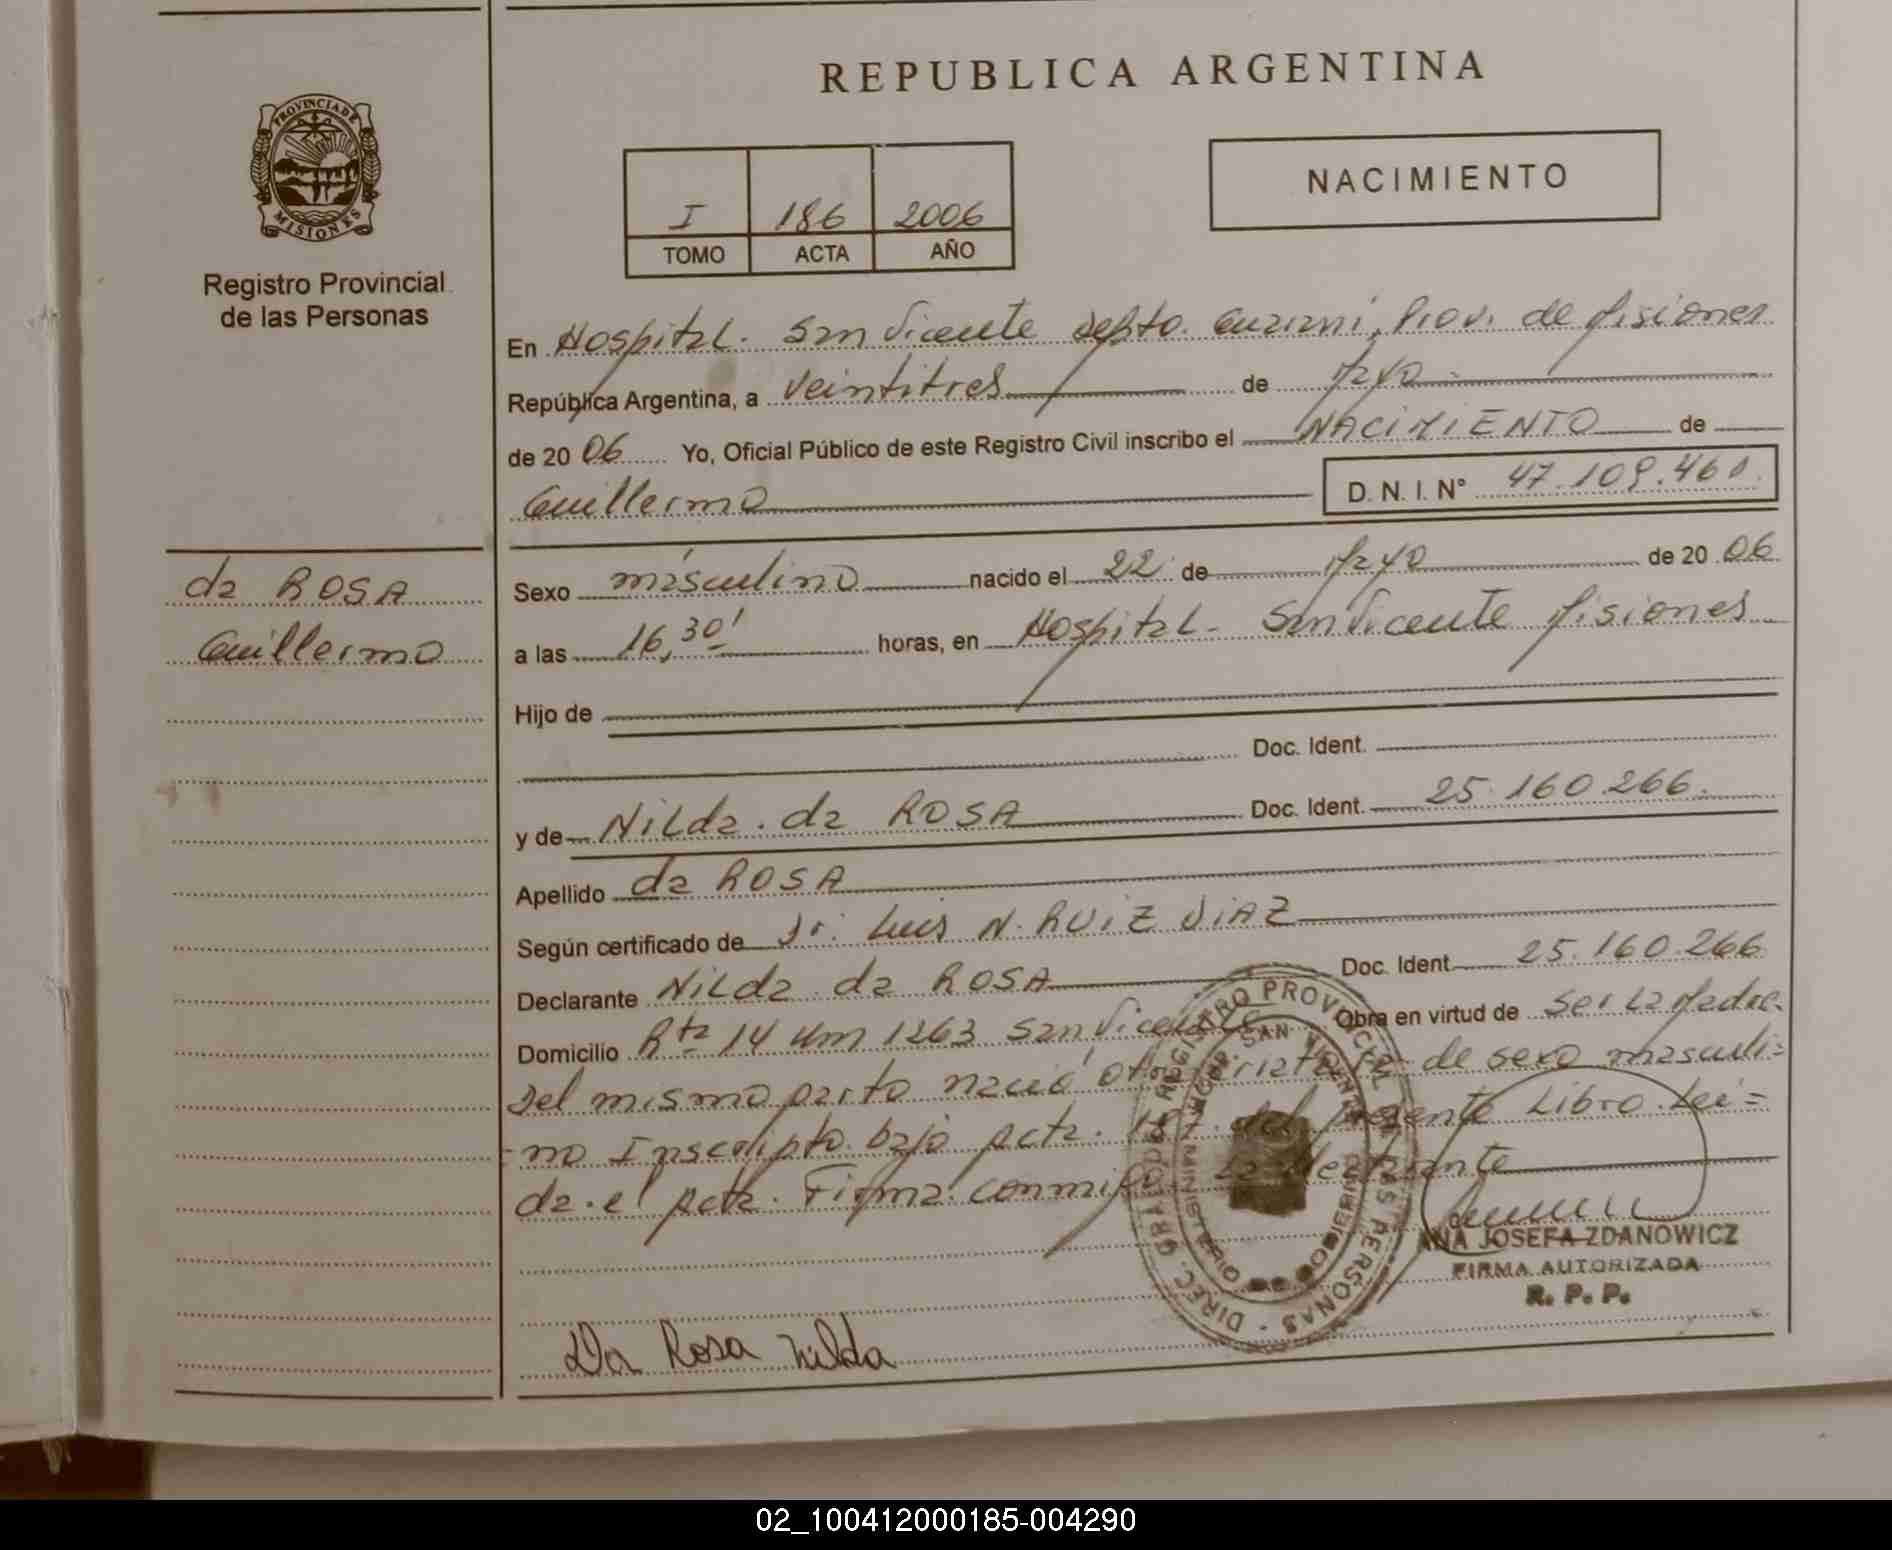 REPUBLICA ARGENTINA
PROVINCIA DE
MISIONES
Registro Provincial
de las Personas
I 186 2006
TOMO ACTA AÑO
NACIMIENTO
En Hospital. San Vicente Depto. Guarani, Prov. de Misiones
República Argentina, a veintitres de Mayo
de 20 06 Yo, Oficial Público de este Registro Civil inscribo el NACIMIENTO de
Guillermo D. N. I. Nº 47.109.461.
da ROSA
Guillermo
Sexo másculino nacido el 22 de Mayo de 20 06
a las 16,30' horas, en Hospital - San Vicente Misiones
Hijo de
Doc. Ident.
y de Nilda. da ROSA Doc. Ident. 25.160.266.
Apellido da ROSA
Según certificado de Dr. Luis N. RUIZ DIAZ
Declarante Nilda da ROSA Doc. Ident. 25.160.266
Domicilio Rta 14 Km 1263 San Vicente Obra en virtud de ser La Madre.
Del mismo parto nació de sexo masculi=
=no Inscripto bajo Acta. 187. del presente Libro. Leí=
da. el Acta. Firma. conmigo La
DIREC. GRAL. DE REGISTRO PROVINCIAL DE LAS PERSONAS
SAN VICENTE
MINISTERIO DE GOBIERNO
ANA JOSEFA ZDANOWICZ
FIRMA AUTORIZADA
R. P. P.
Da Rosa nilda
02_100412000185-004290